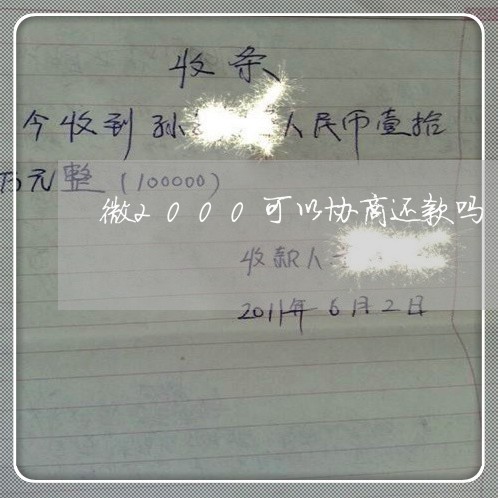 收条
今收到孙 人民币壹拾
万元整(100000)
微2000可以协商还款吗
收款人
2011年6月2日